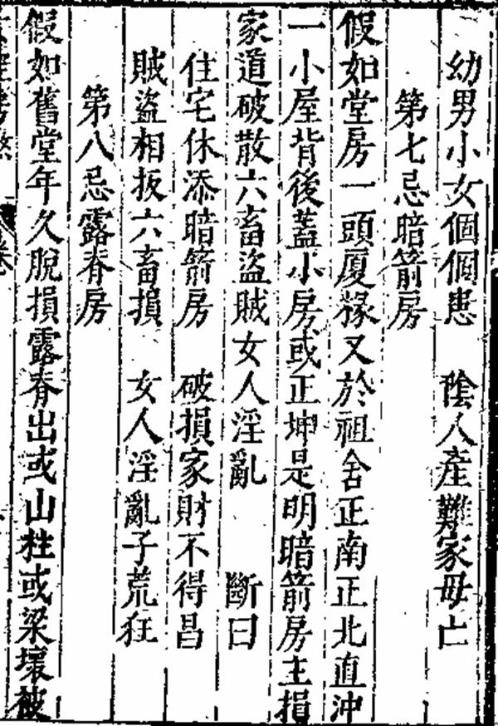 幼男小女個個患　陰人產難家毋亡
第七忌暗箭房
假如堂房一頭厦椽又於祖舍正南正北直沖
一小屋背後蓋小房或正坤是明暗箭房主損
家道破散六畜盜賊女人淫亂　斷曰
住宅休添暗箭房　破損家財不得昌
賊盜相扳六畜損　女人淫亂子荒狂
第八忌露脊房
假如舊堂年久脫損露脊出或山柱或梁壞被